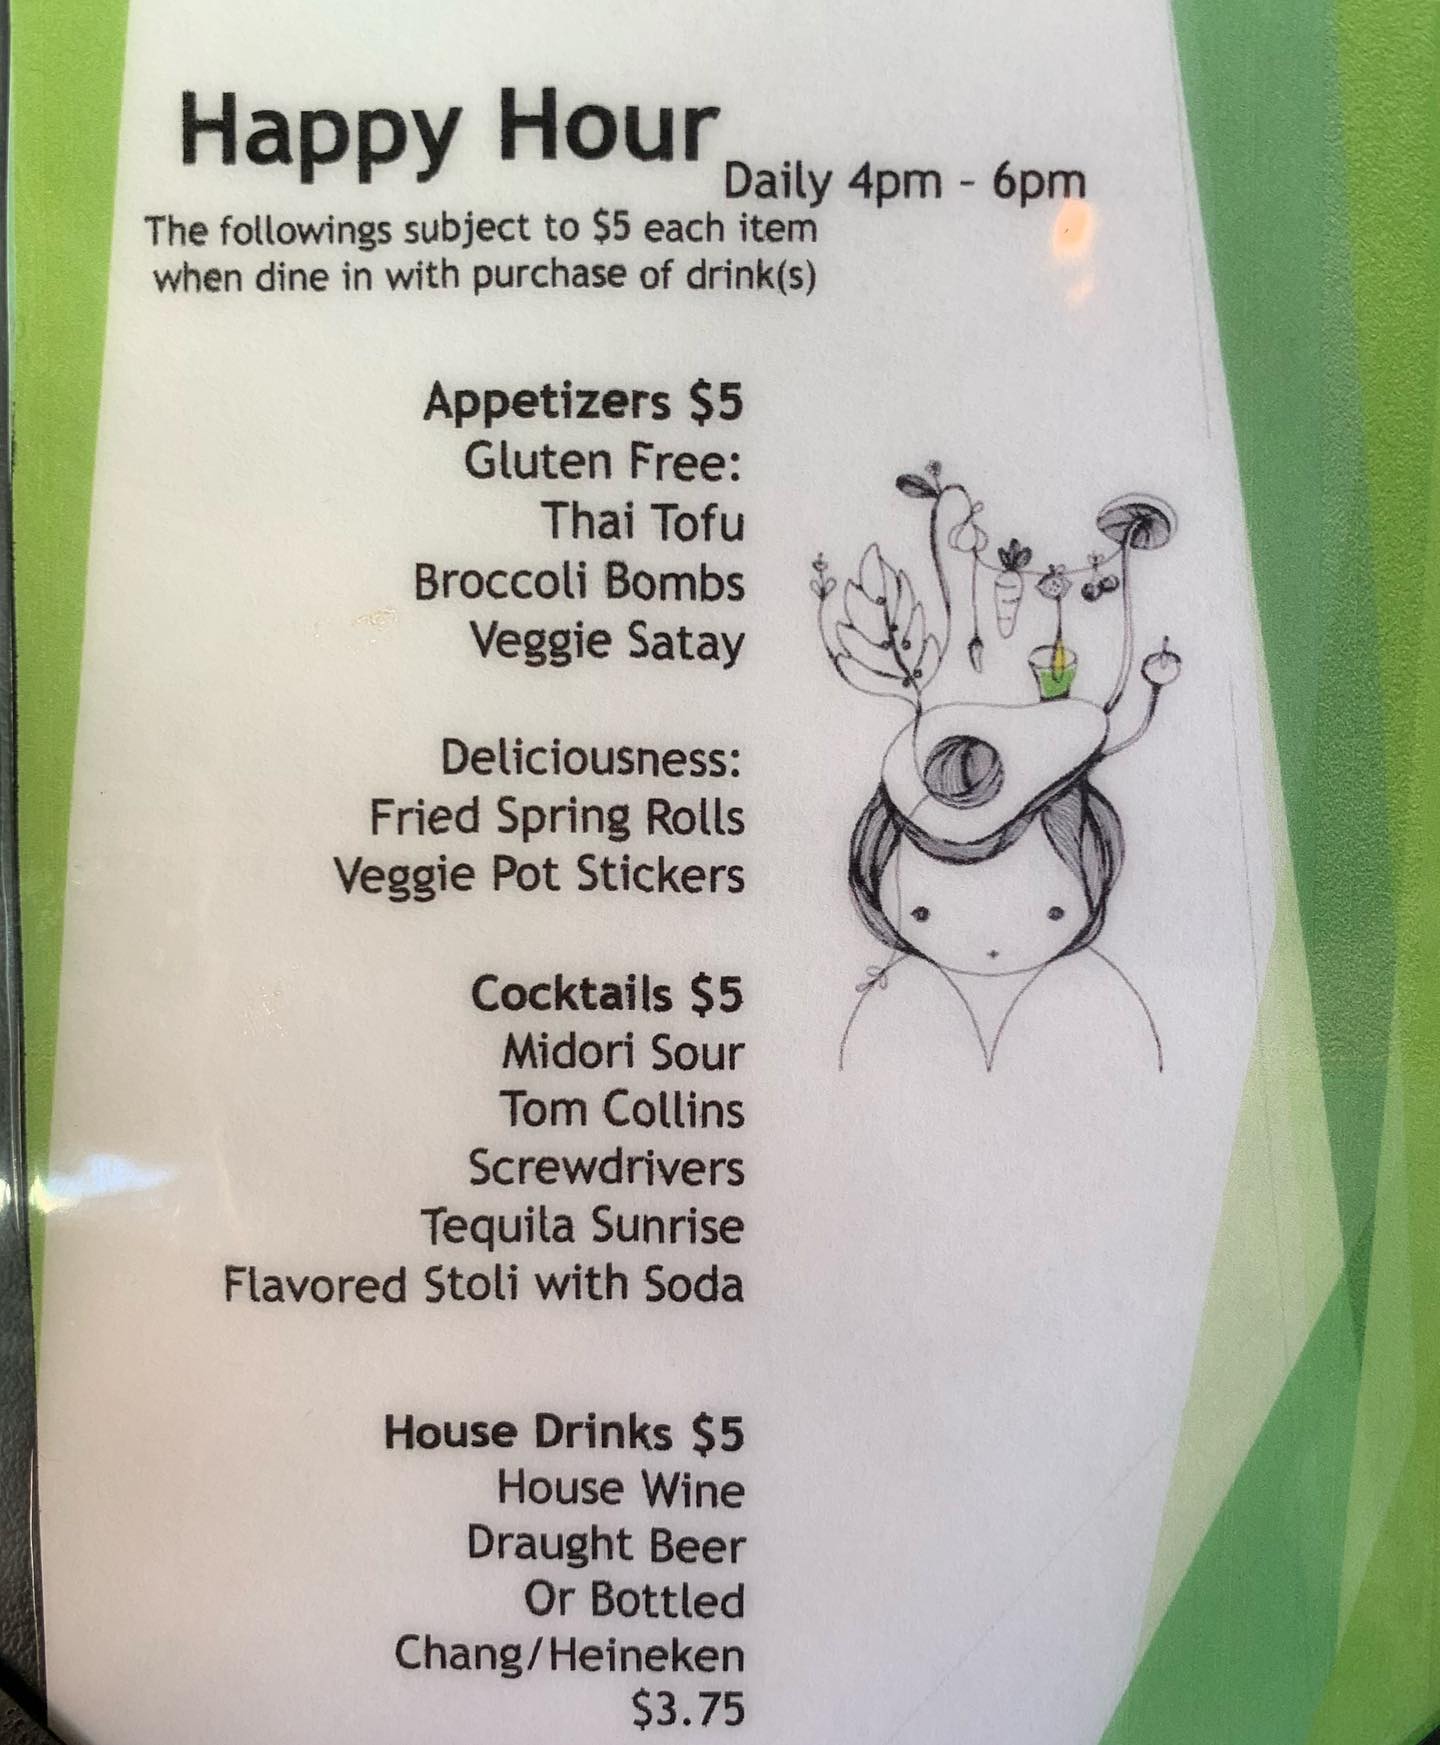 Happy Hour
Daily 4pm - 6pm
The followings subject to $5 each item
when dine in with purchase of drink(s)
Appetizers $5
Gluten Free:
Thai Tofu
Broccoli Bombs
Veggie Satay
Deliciousness:
Fried Spring Rolls
Veggie Pot Stickers
Cocktails $5
Midori Sour
Tom Collins
Screwdrivers
Tequila Sunrise
Flavored Stoli with Soda
House Drinks $5
House Wine
Draught Beer
Or Bottled
Chang/Heineken
$3.75